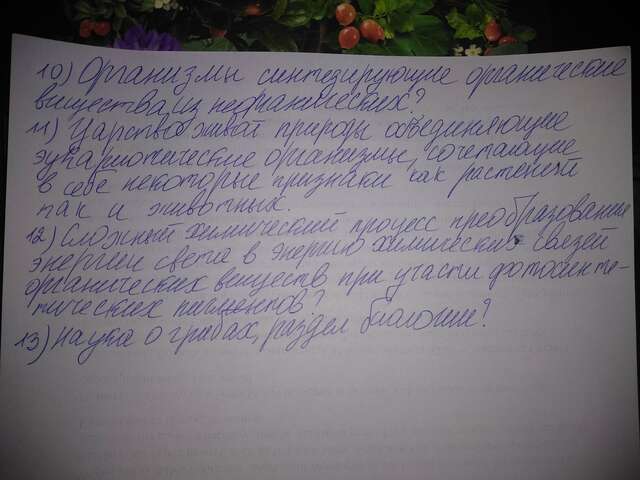 10) Организмы синтезирующие органические
вещества из неорганических?
11) Царство живой природы объединяющие
эукариотические организмы, сочетающие
в себе некоторые признаки как растений
так и животных.
12) Сложный химический процесс преобразования
энергии света в энергию химических связей
органических веществ при участи фотосинте-
тических пигментов?
13) Наука о грибах, раздел биологии?